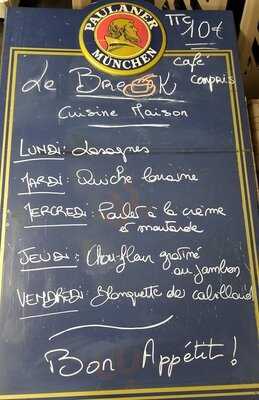 PAULANER
MÜNCHEN
TTC
10€
café
compris
Le Break
Cuisine Maison
LUNDI : Lasagnes
MARDI : Quiche lorraine
MERCREDI : Poulet à la crème
et moutarde
JEUDI : Chou-fleur gratiné
au jambon
VENDREDI : Blanquette de cabillaud
Bon Appétit !